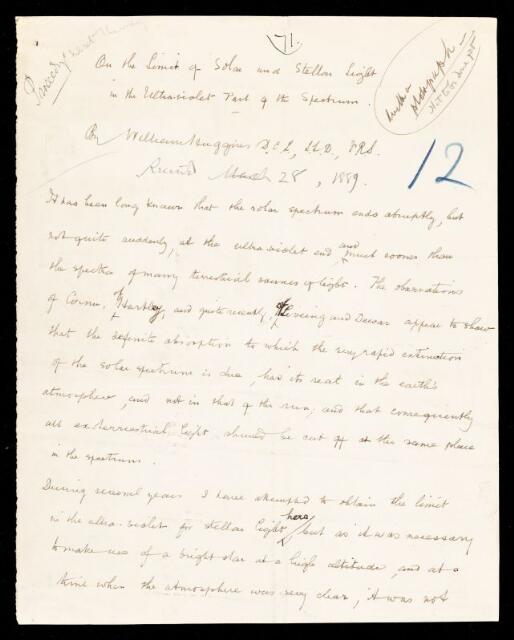 71.
On the Limit of Solar and Stellar Light
in the Ultra-violet Part of the Spectrum.
with a
photograph
Not to be
By William Huggins D.C.L., LL.D., F.R.S.
Received March 28, 1889.
12
It has been long known that the solar spectrum ends abruptly, but
not quite suddenly, at the ultra-violet end and much sooner than
the spectra of many terrestrial sources of light. The observations
of Cornu, of Hartley, and quite recently, of Liveing and Dewar appear to show
that the definite absorption to which the very rapid extinction
of the solar spectrum is due, has its seat in the earth's
atmosphere, and not in that of the sun; and that consequently
all ex-terrestrial light should be cut off at the same place
in the spectrum.
During several years I have attempted to obtain the limit
in the ultra-violet for stellar light here, but as it was necessary
to make use of a bright star at a high altitude, and at a
time when the atmosphere was very clear, it was not